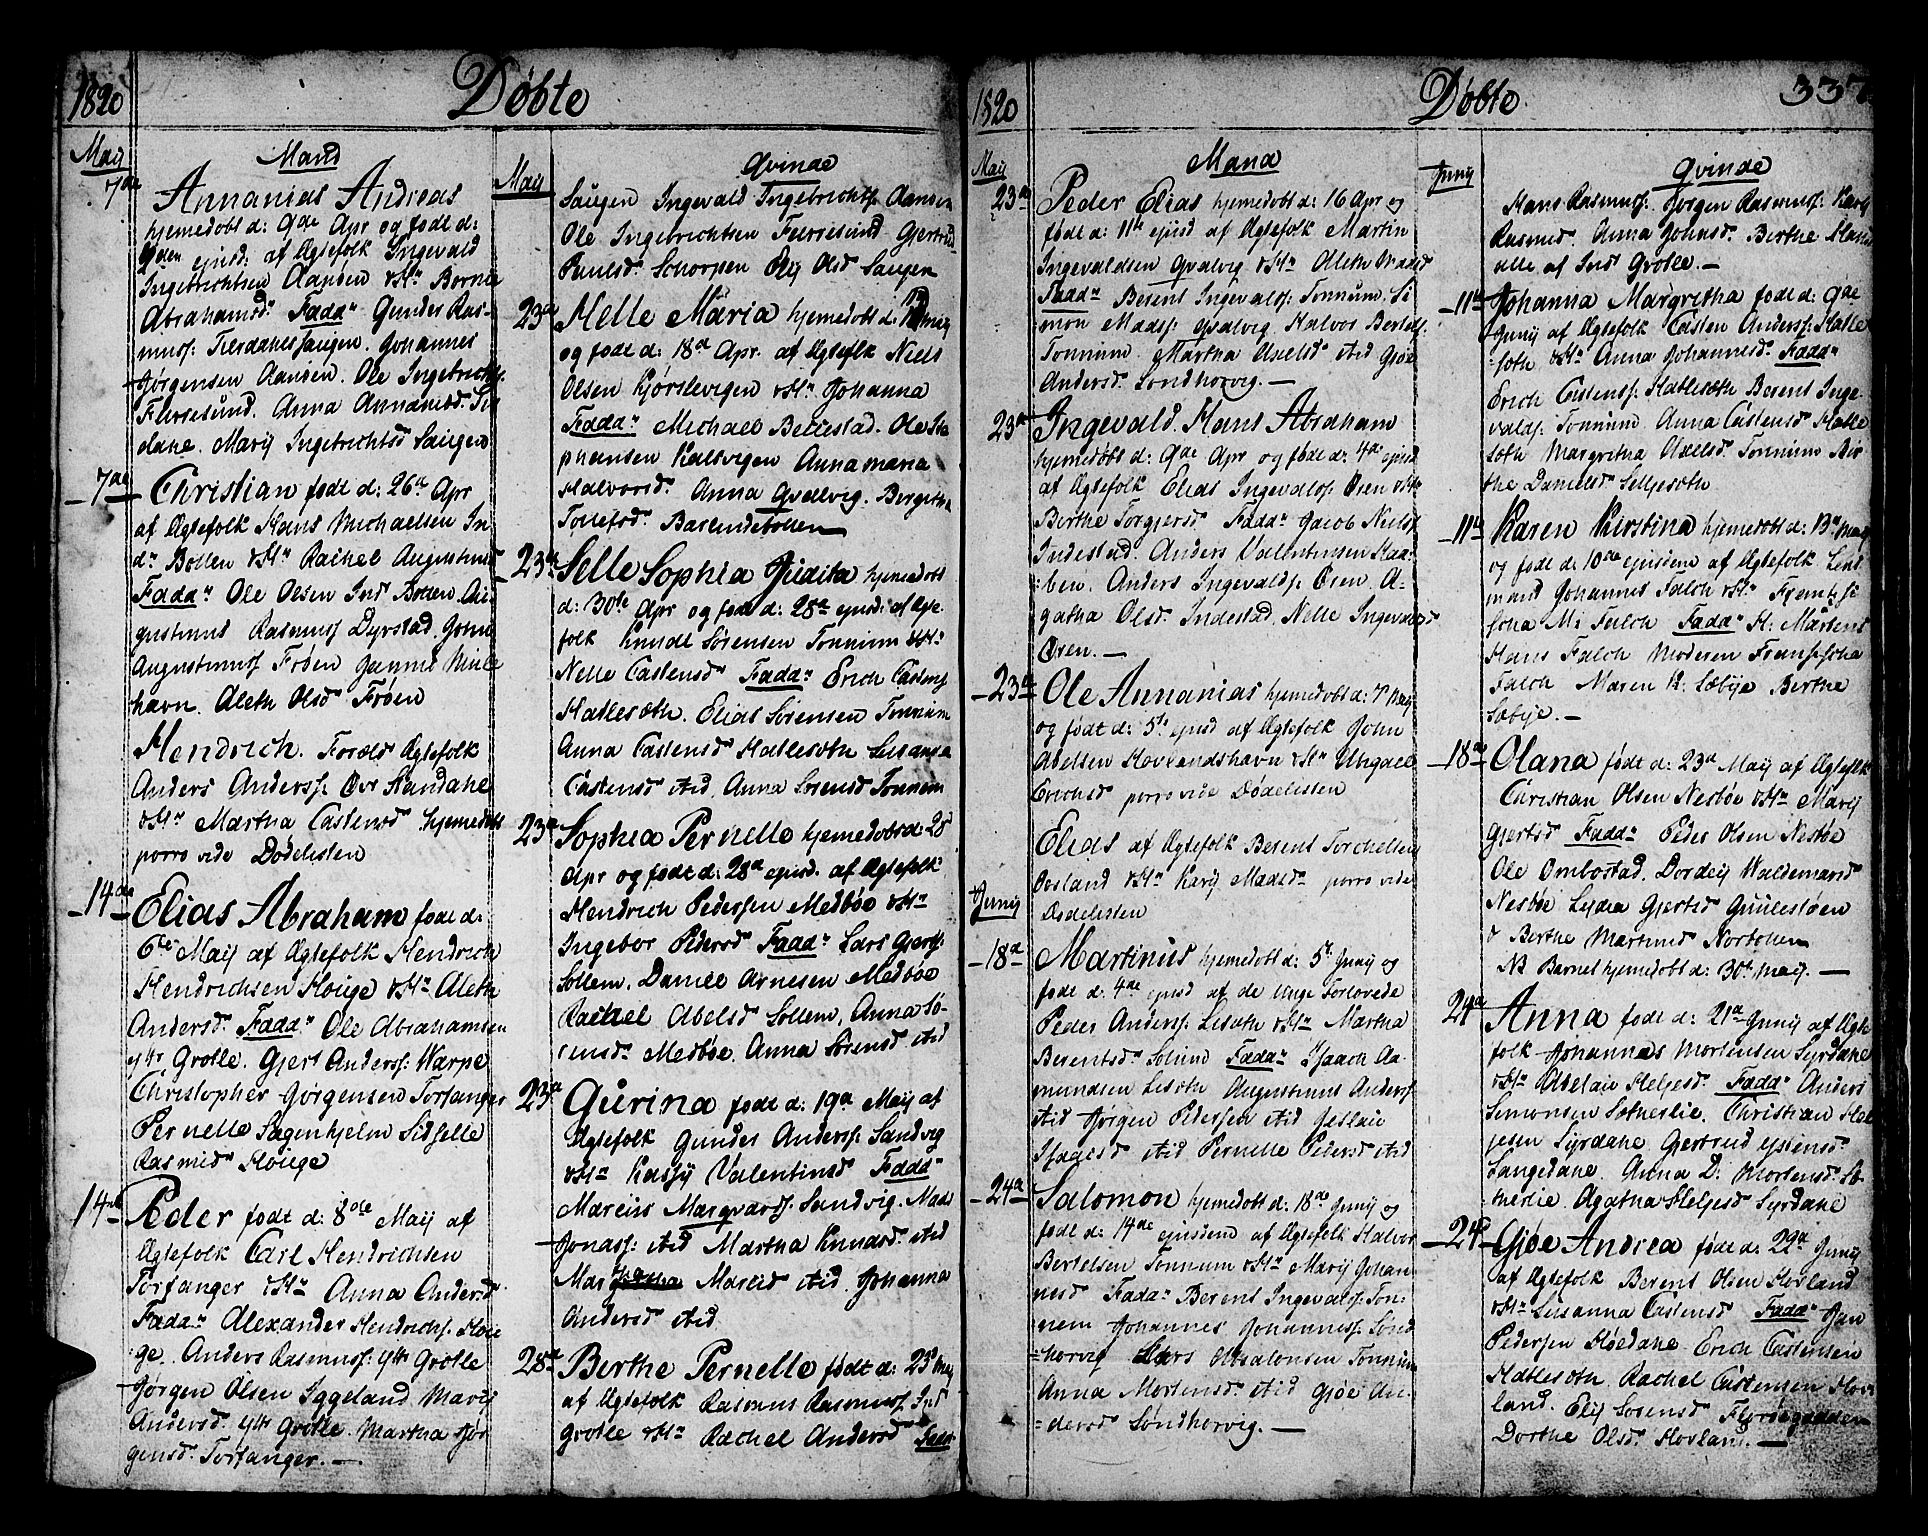 1820
Døbte
Maij
Mand
7de
Annanias Andreas
hjemedøbt d: 9de Apr og født d:
ejusd: af Ægtefolk Ingevald
Ingebrichtsen Aansen & H: Borna
Abrahamsd: Fadd: Gunder Ras-
muss: Johannes
Jørgensen Aansen. Ole Ingebrichts:
Furresund. Anna Annaniasd:
dahe. Marij Ingebrichtsd Saugen
7de
Christian født d: 26de Apr
af Ægtefolk Hans Michaelsen In
d: Botten & H: Rachel Augustinusd
Fadd: Ole Olsen Ind Botten. Au-
gustinus Rasmuss Dyrstad. John
Augustinuss Frøen Gamme
havn. Aleth Olsd Frøen
Hendrich. Foræld: Ægtefolk
Anders Anderss: Øvr Standahe
& H: Martha Castensd hjemedøbt
porro vide Dødelisten
14de
Elias Abraham født d:
6te Maij af Ægtefolk Hendrich
Hendrichsen Høige & H: Aleth
Andersd: Fadd: Ole Abrahamsen
ytr Grotle. Gjert Anderss: Warpe
Christopher Jørgensen Torfanger
Pernelle Sagenhjelm Sidselle
Rasmusd Høige
14de
Peder født d: 8de Maij af
Ægtefolk Carl Hendrichsen
Torfanger & H: Anna Andersd
Fadd: Alexander Hendrichs: Høi
ge. Anders Rasmuss: ytr Grotle
Jørgen Olsen Iggeland Marij
Andersd: ytr Grotle. Martha Jør
gensd: Torfanger. —
Maij
Qvinde
Saugen Ingevald Ingebrichts: Aansen
Ole Ingebrichtsen Furresund Gjertrud
Paulsd: Schorpen Elij Olsd Saugen
23de
Helle Maria hjemedøbt d: Maij
og født d: 18de Apr. af Ægteflk Niels
Olsen Kjørslevigen & H: Johanna
Fadd: Michael Bellestad. Ole Ste
phansen Kalsvigen Anna maria
Halvorsd: Anna Qvalvig. Bergitha
Tollefsd: Barendsbotten
23de
Selle Sophia Judita hjemedøbt
d: 30te Apr og født d: 28de ejusd: af Ægte-
folk Knudt Sørensen Tonnum & H:
Nelle Castensd Fadd: Erich Castens:
Hatlesæth. Elias Sørensen Tonnum
Anna Castensd Hatlesæth Lusanna
Castensd Ibid, Anna Sørensd Tonnum
23de
Sophia Pernelle hjemedøbt d: 28
Apr og født d: 28de ejusd: af Ægtefolk
Hendrich Pedersen Medbøe & H:
Ingebor Pedersd Fadd: Lars Gjerts:
Sollem. Daniel Arnesen Medbøe
Rachel Abelsd Sollem, Anna Sø-
rensd: Medbøe. Anna Sørensd ibid
23de
Gurina født d: 19de Maij af
Ægtefolk Gunder Anderss: Sandvig
& H: Valentinsd Fadd:
Marcus Marqvards: Sandvig. Mads
Jonass: ibid Martha Knudsd: ibid
Marcusd ibid. Johanna
Andersd ibid
28de
Berthe Pernelle født d: 23de Maij
af Ægtefolk Rasmus Rasmuss: Ind
Grotle & H: Rachel Andersd Fadd:
1820
Døbte
337
Maij
Mand
23de
Peder Elias hjemedøbt d: 16 Apr og
født d: 11te ejusd af Ægtefolk Martin
Ingevaldsen Qvalvig & H: Aleth Madsd
Fadd: Berent Ingevalds: Tonnum. Si
mon Madss: Qvalvig Halvor Bertels:
Tonnum. Martha Axelsd ibid Gjøe
Andersd. Sondhorvig. —
23de
Ingevald Hans Abraham
hjemedøbt d: 9de Apr og født d: 4de ejusd
af Ægtefolk Elias Ingevalds: Øren & H:
Berthe Torgjersd: Fadd: Jacob Niels:
Indestad. Anders Valentinsen Haa-
ben. Anders Ingevalds: Øren. A-
gatha Olsd: Indestad. Nelle Ingevaldsd
Øren. —
23de
Ole Annanias hjemedøbt d: 7de Maij
og født d: 5te ejusd af Ægtefolk John
Abelsen Hovlandshavn & H: Ungael
Erichsd porro vide Dødelisten
Elias af Ægtefolk Berent Torchelsen
Oosland & H: Karij Madsd: porro vide
Dødelisten
Junij
18de
Martinus hjemedøbt d: 5te Junij og
født d: 4de ejusd af de Unge Forlovede
Peder Anderss: Lisæth & H: Martha
Berentsd: Solund Fadd: Isaach Aa-
mundsen Lisæth Augustinus Anders:
ibid Jørgen Pedersen ibid Jeslau
Isacsd ibid Pernelle Pedersd ibid
24de
Salomon hjemedøbt d: 18de Junij og
født d: 14de ejusdem af Ægtefolk Halvor
Bertelsen Tonnum & H: Marij Johan
nesd: Fadd: Berent Ingevalds: Ton:
nem Johannes Johanness: Sønd
horvig Lars Absalonsen Tonnum
Anna Mortensd: ibid Gjøe An-
dersd Søndhorvig. —
Junij
Qvinde
Hans Rasmuss: Jørgen Rasmuss: Karij
Rasmusd: Anna Johnsd. Berthe
alle af Ind Grotle. —
11te
Johanna Margretha født d: 9de
Junij af Ægtefolk Casten Anderss: Hatle
sæth & H: Anna Johannesd: Fadd:
Erich Castens: Hatlesæth Berent Inge-
valds: Tonnum. Anna Castensd Hatle
sæth Margretha Axelsd: Tonnum Bir
the Danielsd Selljesæth
11te
Karen Kirstina hjemedøbt d: 13de Maij
og født d: 10de ejusdem af Ægtefolk Lend
mand Johannes Falch & H:
M: Falch Fadd: H: Mårtens
Hans Falch Moderen
Falch Maren K: Sæbye Berthe
Sæbye. —
18de
Olana født d: 23de Maij af Ægtefolk
Christian Olsen Nesbøe & H: Marij
Gjertsd Fadd: Peder Olsen Nesbøe
Ole Ombostad. Dordeij Waldemarsd
Nesbøe Lydia Gjertsd Gulestøen
& Berthe Martinsd Norbotten
NB Barnet hjemedøbt d: 30te Maij. —
24de
Anna født d: 21de Junij af Ægte
folk Johannes Mortensen Lyrdahe
& H: Abelau Heljesd: Fadd: Anders
Simonsen Sætherlie. Christian Hel
jesen Lyrdahe Gjertrud
Langedahe. Anna D: Mortensd: Sæ-
therlie. Agatha Heljesd Lyrdahe
24de
Gjøe Andrea født d: 22de Junij
af Ægtefolk Berent Olsen Hovland
& H: Lusanna Castensd Fadd: Jan
Pedersen Høedahe. Erich Castensen
Hatlesæth Rachel Castensen Hov
land. Elij Sørensd
Dorthe Olsd: Hovland. —